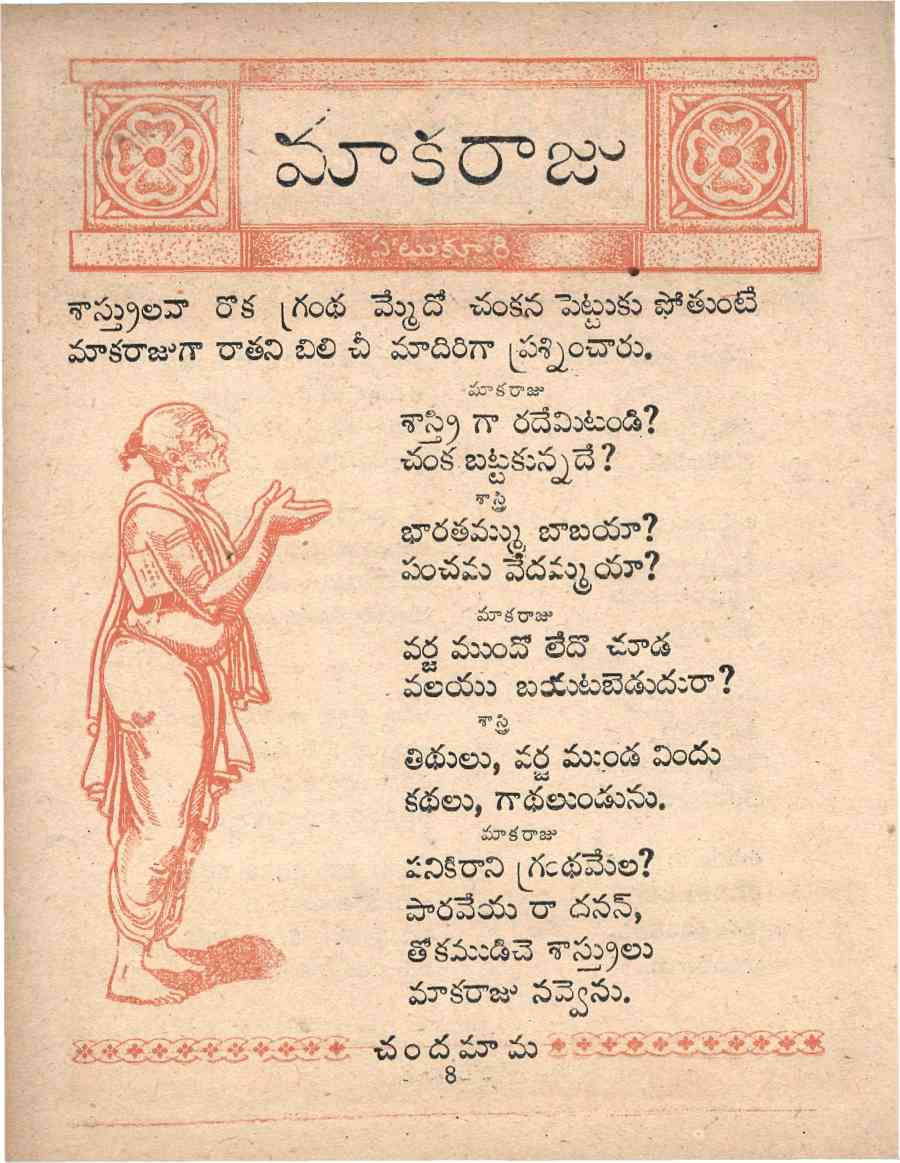 మాకరాజు
ఏటుకూరి
శాస్త్రులవా రొక గ్రంథ మ్మేదో చంకన పెట్టుకు పోతుంటే
మాకరాజుగా రాతని బిలి చీ మాదిరిగా ప్రశ్నించారు.
మాకరాజు
శాస్త్రి గా రదేమిటండి?
చంక బట్టకున్నదే?
శాస్త్రి
భారతమ్ము బాబయా?
పంచమ వేదమ్మయా?
మాకరాజు
వర్జ ముందో లేదొ చూడ
వలయు బయటబెడుదురా?
శాస్త్రి
తిథులు, వర్జ ముండ విందు
కథలు, గాథలుండును.
మాకరాజు
పనికిరాని గ్రంథమేల?
పారవేయ రా దనన్,
తోకముడిచె శాస్త్రులు
మాకరాజు నవ్వెను.
చందమామ
8